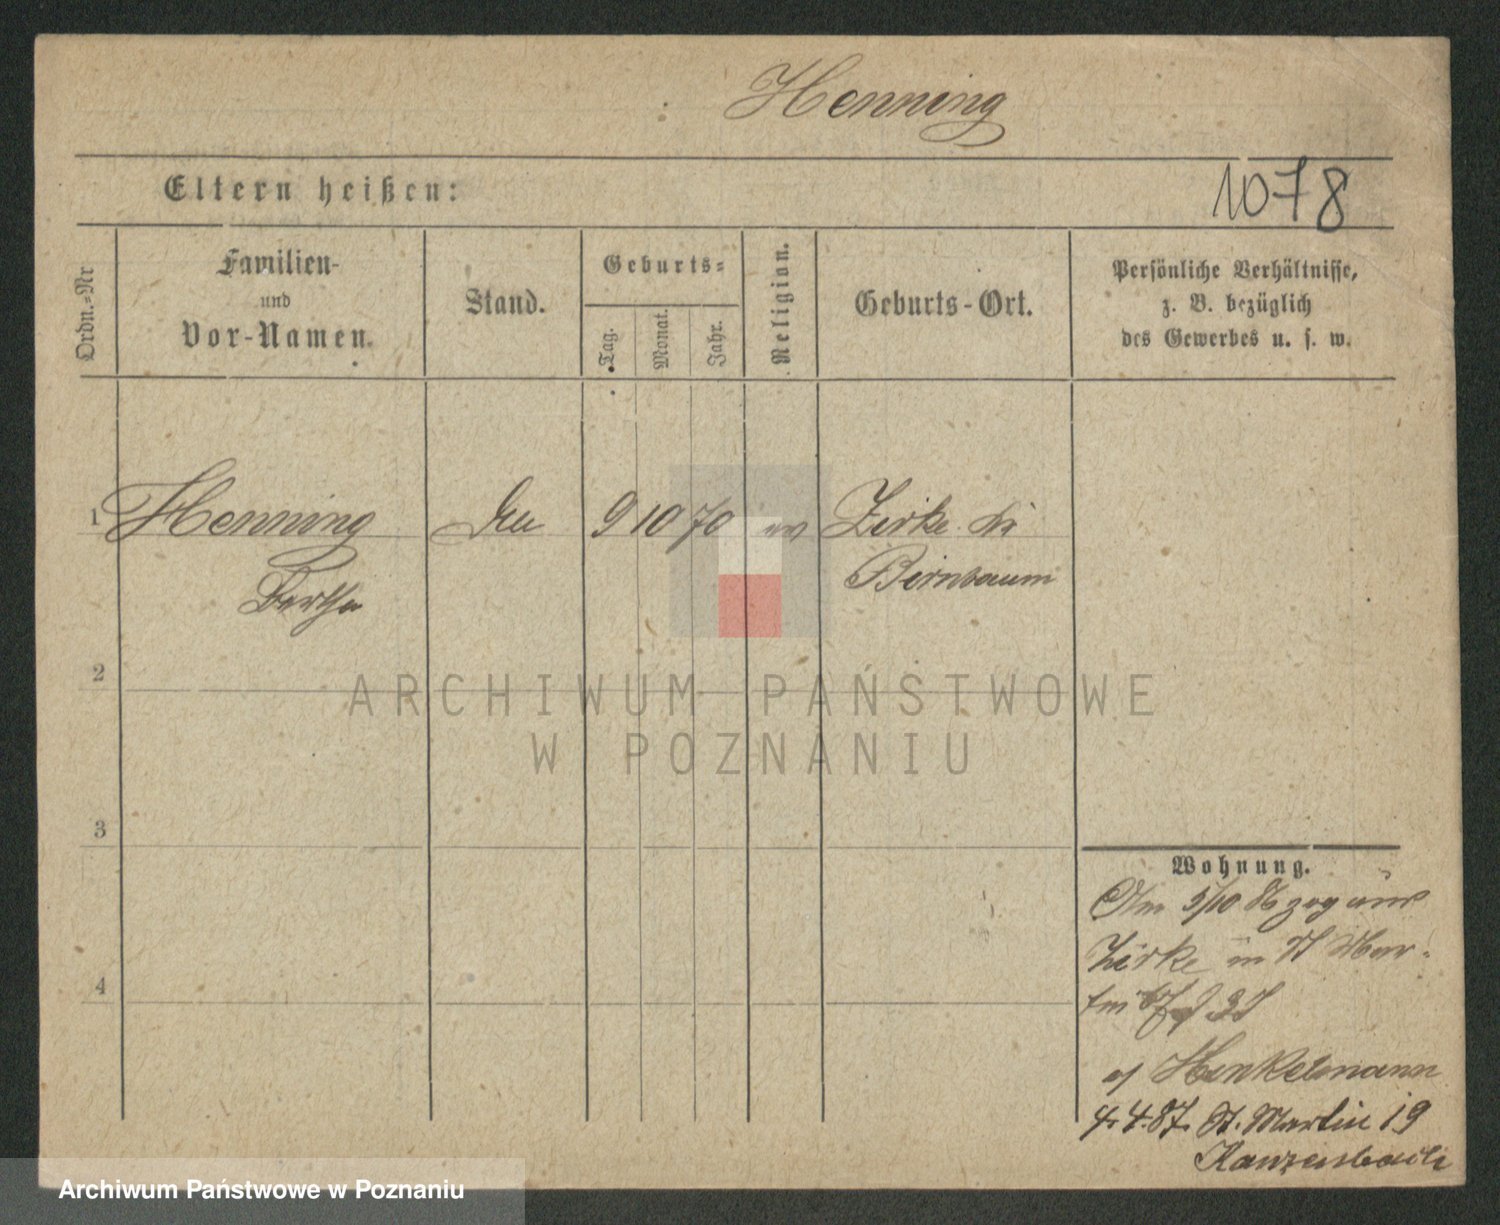 Henning
Eltern heißen:
1078
Ordn.=Nr
Familien-
und
Vor-Namen.
Stand.
Geburts=
Tag.
Monat.
Jahr.
Religion.
Geburts-Ort.
Persönliche Verhältnisse,
z. B. bezüglich
des Gewerbes u. s. w.
1 Henning 9 10 70 ev Zirke Kr
Bertha Birnbaum
2
3
4
Wohnung.
Am 5/10 86 zog aus
Zirke in St Mar-
tin
Henkelmann
4.4.87. St. Martin 19
ARCHIWUM PAŃSTWOWE
W POZNANIU
Archiwum Państwowe w Poznaniu